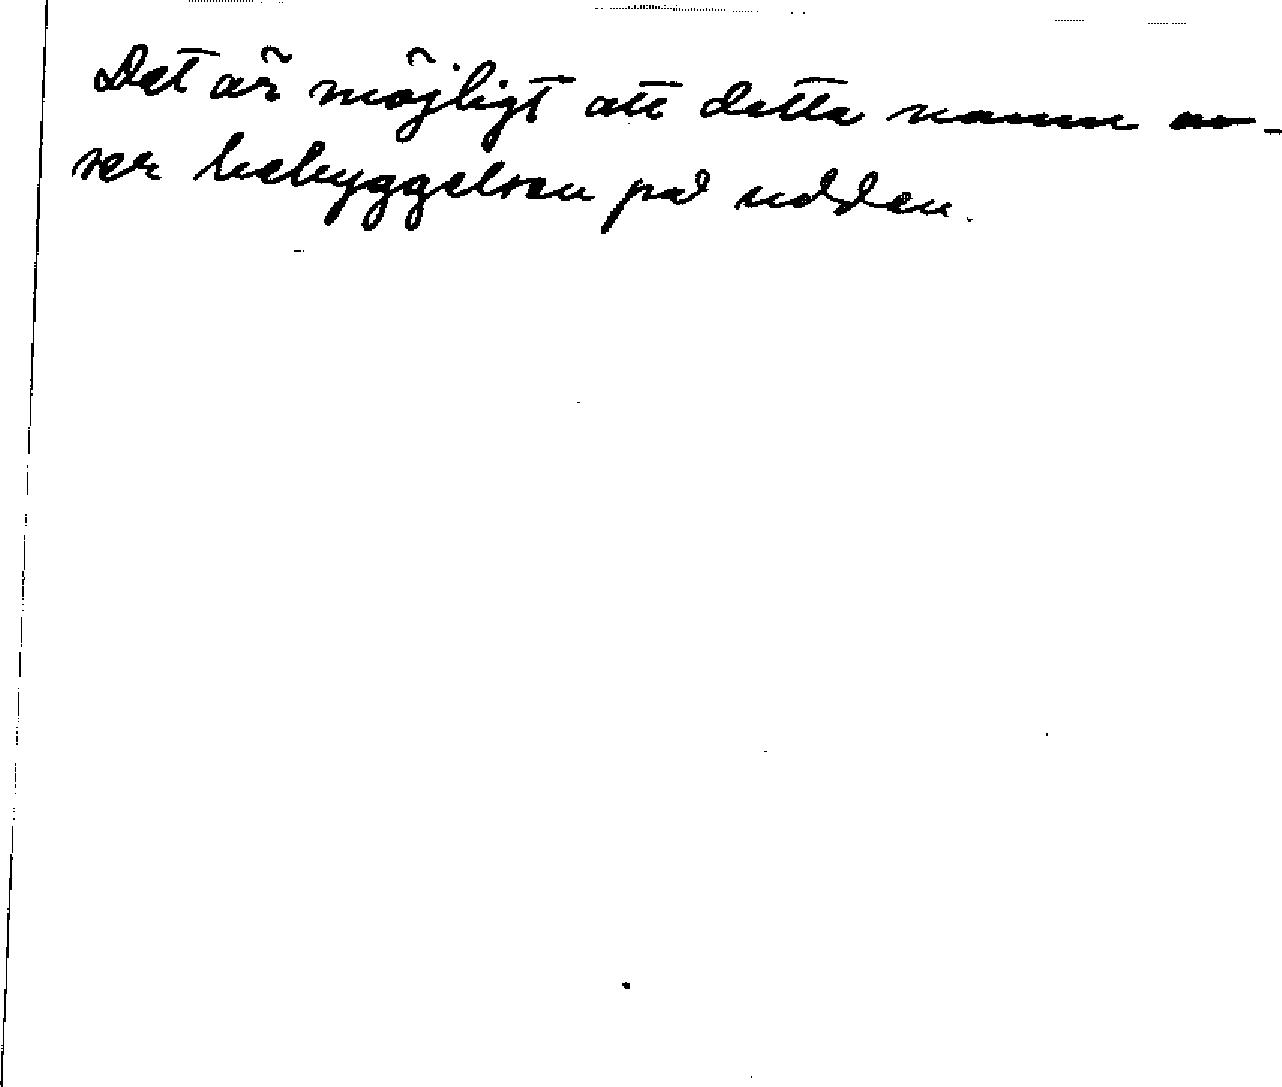 Det är möjligt att detta namn av-
ser bebyggelsen på udden.